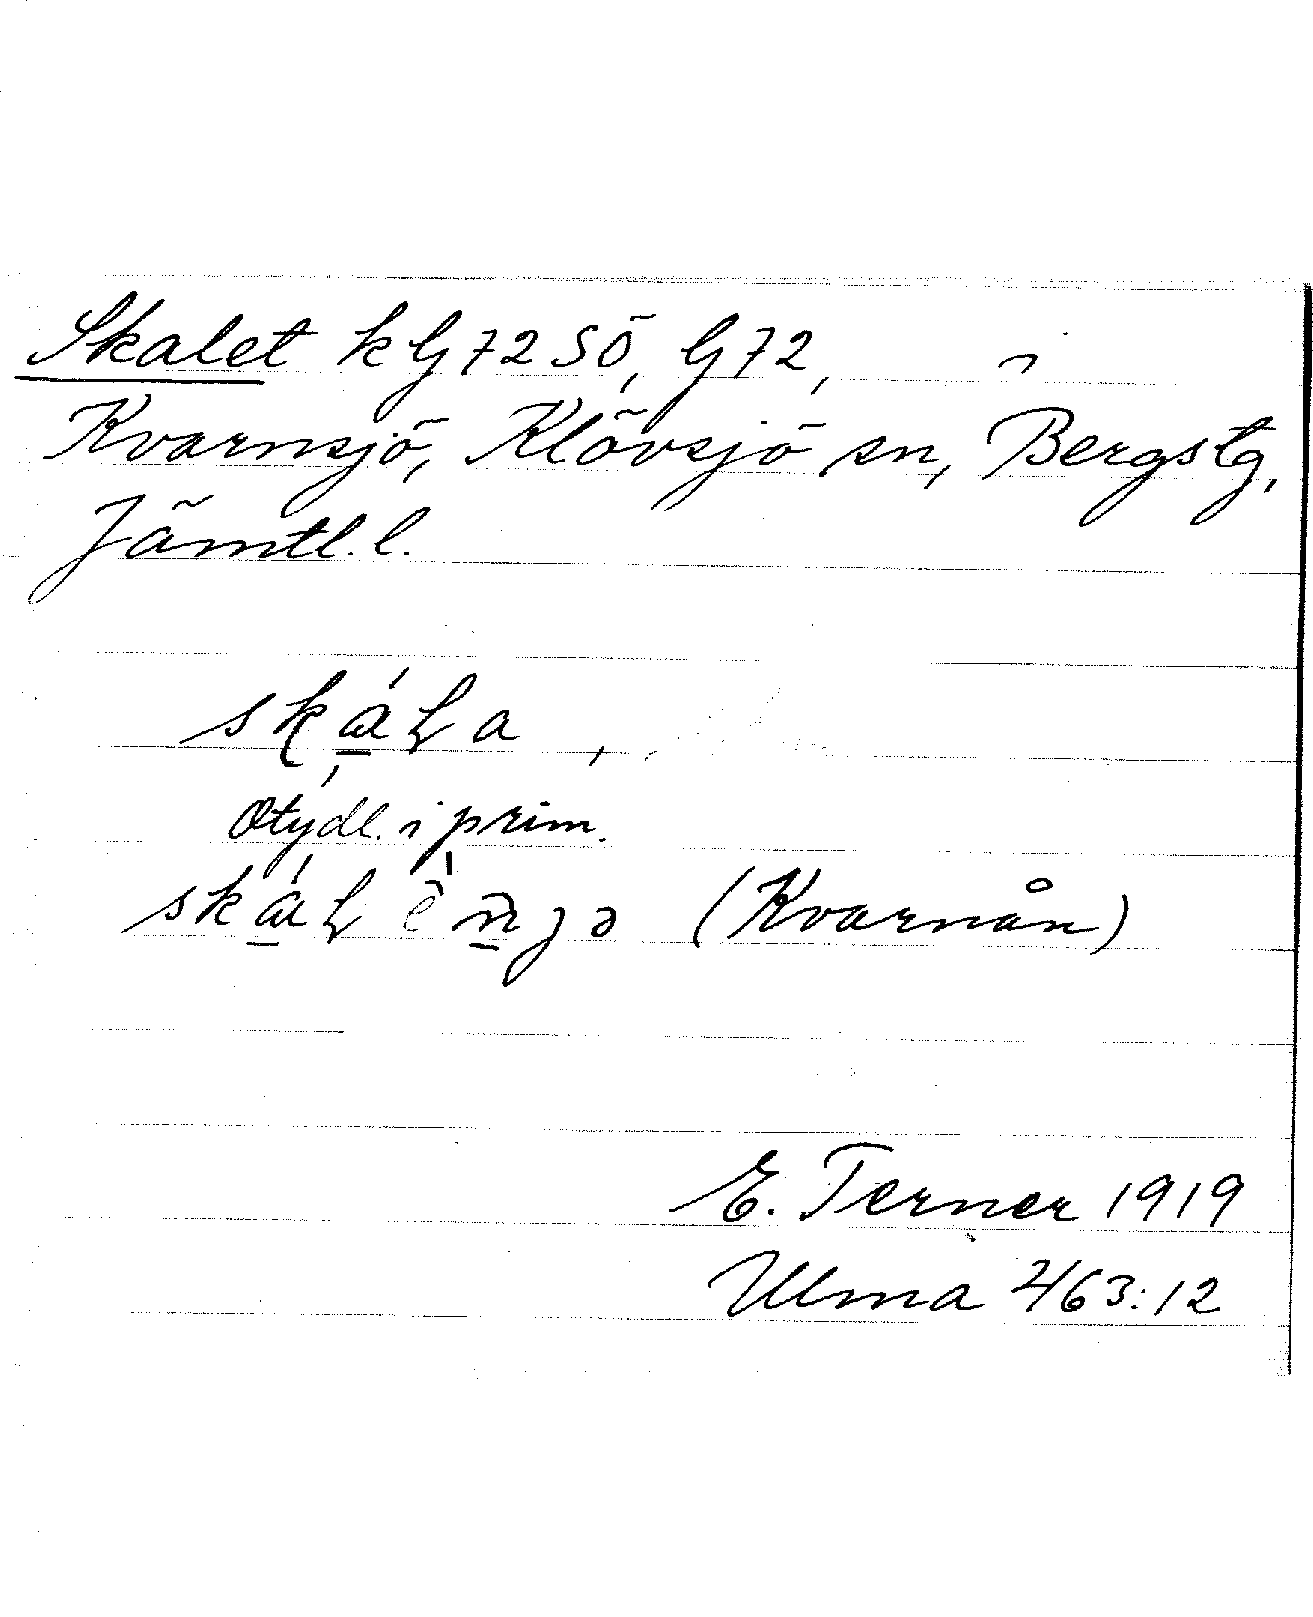 Skalet k G 72 SÖ, G 72, i
Kvarnsjö, Klövsjö sn, Bergs tg,
Jämtl. l.
skáLa,
Otydl. i prim.
(Kvarnån)
E. Terner 1919
Ulma 263:12